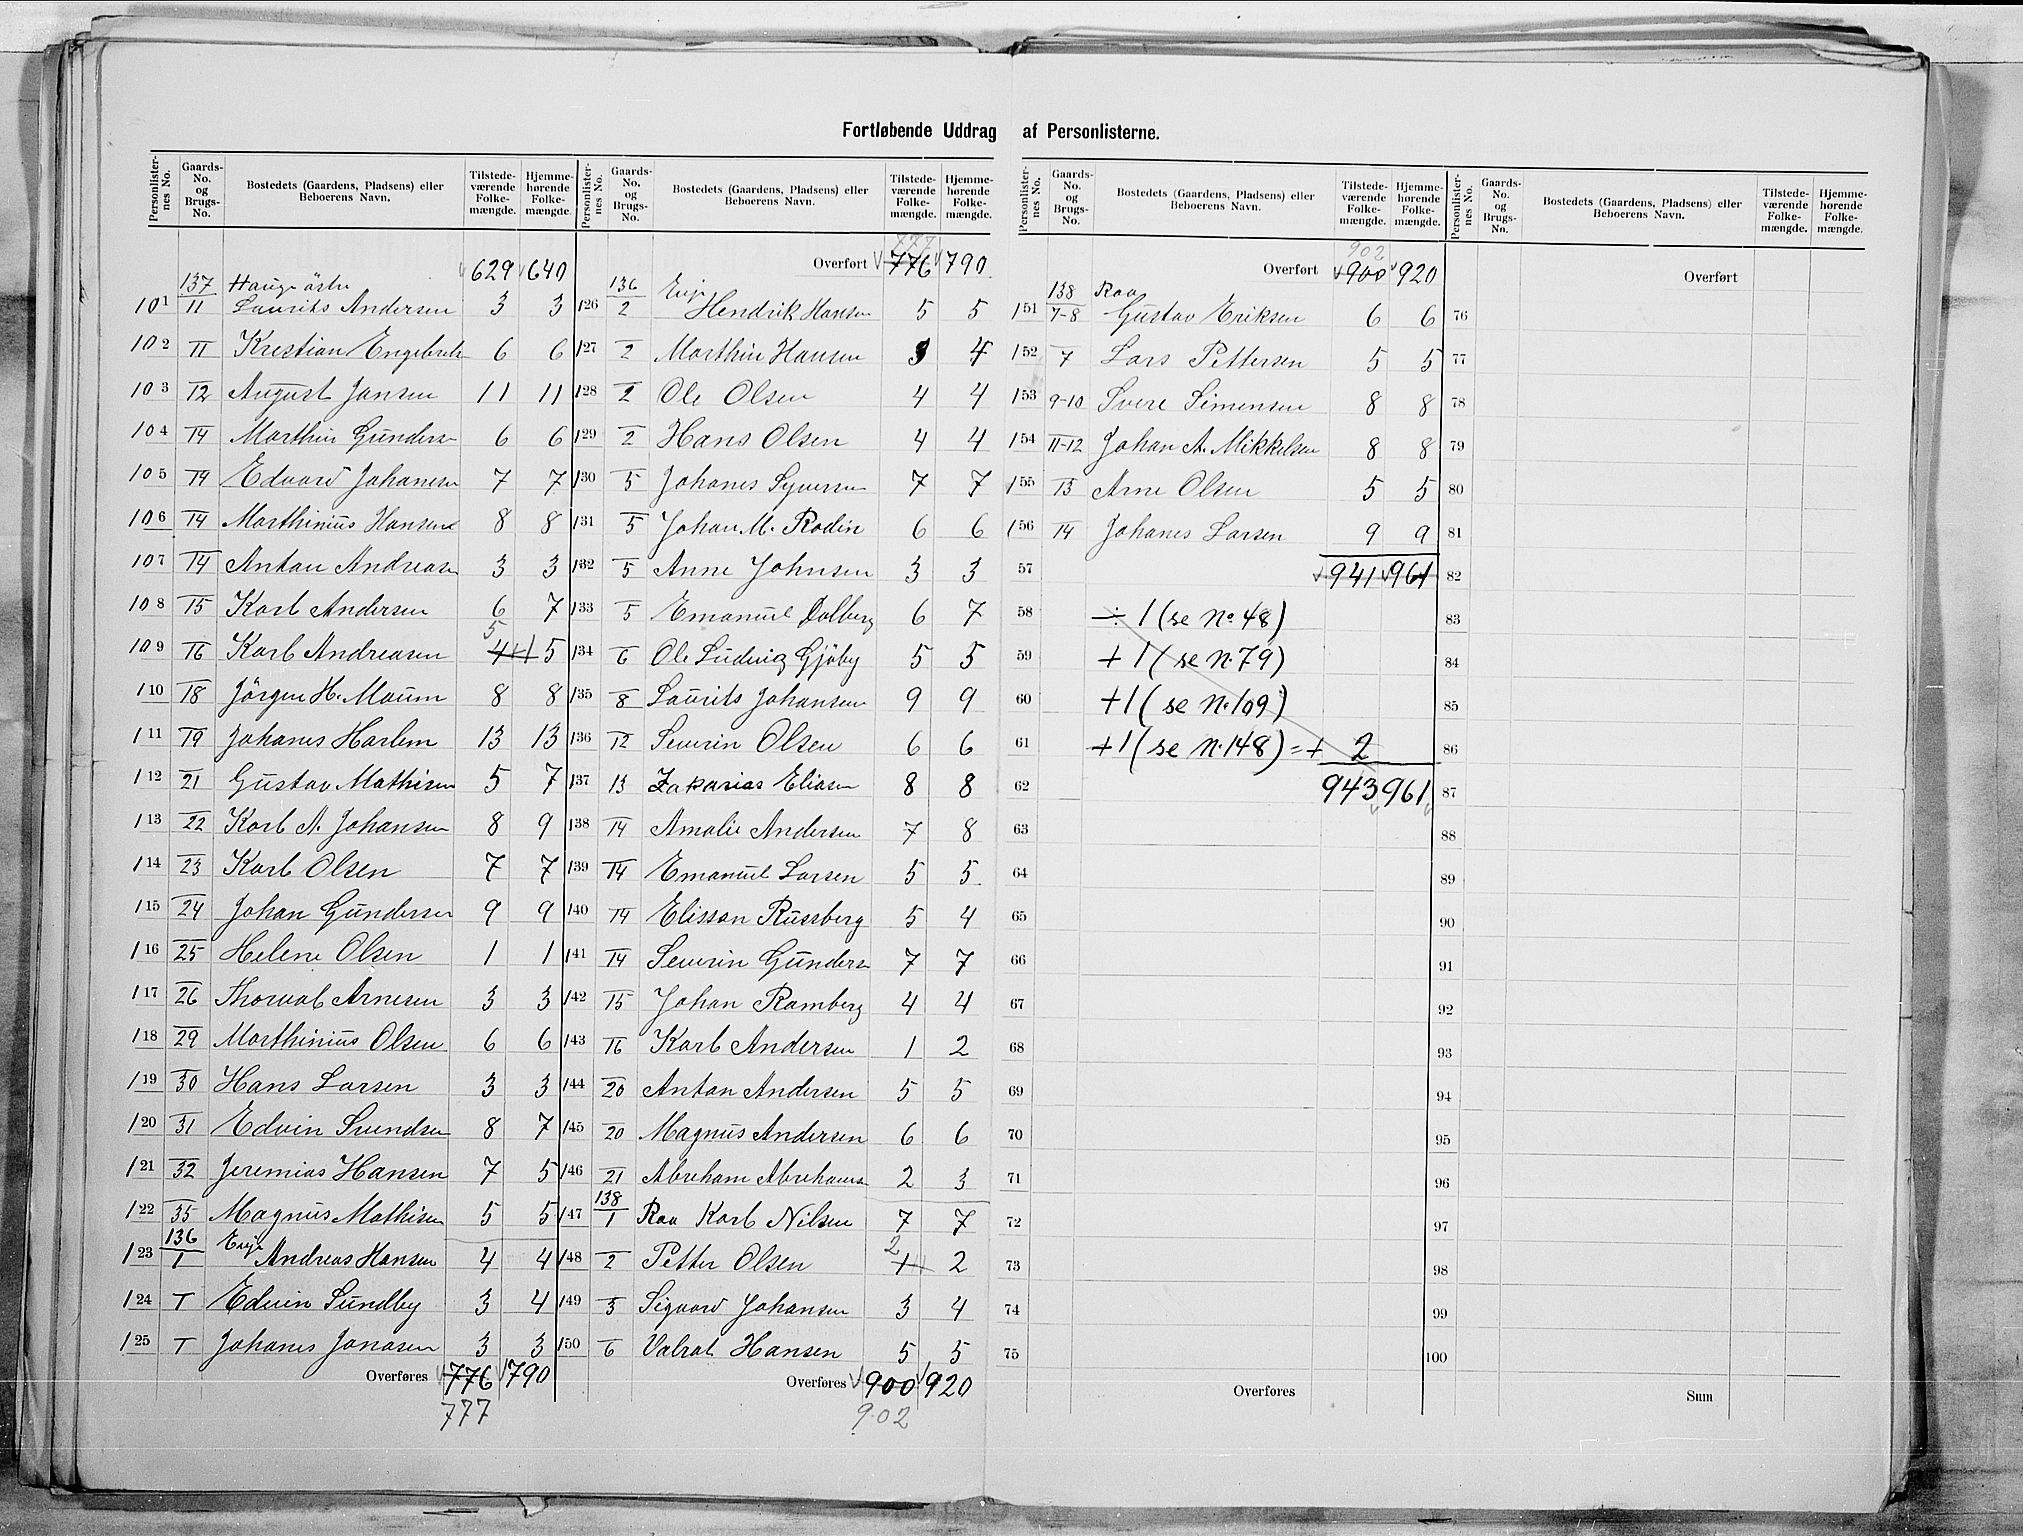 Fortløbende Uddrag af Personlisterne.
Personlister- nes No. Gaards- No. og Brugs- No. Bostedets (Gaardens, Pladsens) eller Beboerens Navn. Tilstede- værende Folke- mængde. Hjemme- hørende Folke- mængde.
629 640
137 Hauge östre
101 11 Laurits Andersen 3 3
102 11 Krestian Engebrets 6 6
103 12 August Jansen 11 11
104 14 Marthin Gunders 6 6
105 14 Edvard Johanesen 7 7
106 14 Marthinius Hansen 8 8
107 14 Anton Andreasen 3 3
108 15 Karl Andersen 6 7
5
109 16 Karl Andreasen 4+1 5
110 18 Jörgen H. Maum 8 8
111 19 Johanes Harlem 13 13
112 21 Gustav Mathisen 5 7
113 22 Karl A. Johansen 8 9
114 23 Karl Olsen 7 7
115 24 Johan Gundersen 9 9
116 25 Helene Olsen 1 1
117 26 Thorval Arnesen 3 3
118 29 Marthinius Olsen 6 6
119 30 Hans Larsen 3 3
120 31 Edvin Svendsen 8 7
121 32 Jeremias Hansen 7 5
122 35 Magnus Mathisen 5 5
136 Enje
123 1 Andreas Hansen 4 4
124 1 Edvin Sundby 3 4
125 1 Johanes Jonasen 3 3
Overføres 776 790
777
Personlister- nes No. Gaards- No. og Brugs- No. Bostedets (Gaardens, Pladsens) eller Beboerens Navn. Tilstede- værende Folke- mængde. Hjemme- hørende Folke- mængde.
777
Overført 776 790
136 Enje
126 2 Hendrik Hansen 5 5
127 2 Marthin Hansen 3 4
128 2 Ole Olsen 4 4
129 2 Hans Olsen 4 4
130 5 Johanes Syversen 7 7
131 5 Johan M. Rodin 6 6
132 5 Anne Johnsen 3 3
133 5 Emanuel Dalberg 6 7
134 6 Ole Ludvig Gjöby 5 5
135 8 Laurits Johansen 9 9
136 12 Severin Olsen 6 6
137 13 Zakarias Eliasen 8 8
138 14 Amalie Andersen 7 8
139 14 Emanuel Larsen 5 5
140 14 Elisson Russberg 5 4
141 14 Severin Gunders 7 7
142 15 Johan Ramberg 4 4
143 16 Karl Andersen 1 2
144 20 Anton Andersen 5 5
145 20 Magnus Andersen 6 6
146 21 Abreham Abrehams 2 3
138
147 1 Raa Karl Nilsen 7 7
2
148 2 Petter Olsen 1 2
149 3 Sigvard Johansen 3 4
150 6 Valral Hansen 5 5
Overføres 900 920
902
Personlister- nes No. Gaards- No. og Brugs- No. Bostedets (Gaardens, Pladsens) eller Beboerens Navn. Tilstede- værende Folke- mængde. Hjemme- hørende Folke- mængde.
902
Overført 900 920
138 Raa
151 7-8 Gustav Eriksen 6 6
152 7 Lars Pettersen 5 5
153 9-10 Svere Simensen 8 8
154 11-12 Johan A. Mikkelsen 8 8
155 13 Arne Olsen 5 5
156 14 Johanes Larsen 9 9
57 941 961
58 ÷ 1 (se No 48)
59 + 1 (se N. 79)
60 +1 (se N. 109)
61 +1 (se N. 148) = + 2
62 943 961
63
64
65
66
67
68
69
70
71
72
73
74
75
Overføres
Personlister- nes No. Gaards- No. og Brugs- No. Bostedets (Gaardens, Pladsens) eller Beboerens Navn. Tilstede- værende Folke- mængde. Hjemme- hørende Folke- mængde.
Overført
76
77
78
79
80
81
82
83
84
85
86
87
88
89
90
91
92
93
94
95
96
97
98
99
100
Sum